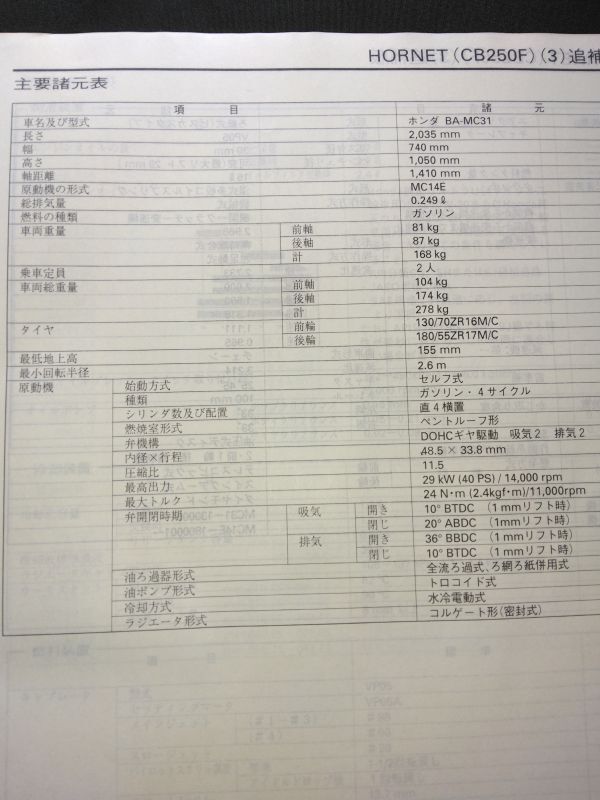 HORNET (CB250F) (3) 追補
主要諸元表
項 目 諸 元
車名及び型式 ホンダ BA-MC31
長さ 2,035 mm
幅 740 mm
高さ 1,050 mm
軸距離 1,410 mm
原動機の形式 MC14E
総排気量 0.249 ℓ
燃料の種類 ガソリン
車両重量 前軸 81 kg
後軸 87 kg
計 168 kg
乗車定員 2 人
車両総重量 前軸 104 kg
後軸 174 kg
計 278 kg
タイヤ 前輪 130/70ZR16M/C
後輪 180/55ZR17M/C
最低地上高 155 mm
最小回転半径 2.6 m
原動機 始動方式 セルフ式
種類 ガソリン・4サイクル
シリンダ数及び配置 直4横置
燃焼室形式 ペントルーフ形
弁機構 DOHCギヤ駆動 吸気2 排気2
内径×行程 48.5 × 33.8 mm
圧縮比 11.5
最高出力 29 kW (40 PS) / 14,000 rpm
最大トルク 24 N・m (2.4kgf・m)/11,000rpm
弁開閉時期 吸気 開き 10° BTDC (1mmリフト時)
閉じ 20° ABDC (1mmリフト時)
排気 開き 36° BBDC (1mmリフト時)
閉じ 10° BTDC (1mmリフト時)
油ろ過器形式 全流ろ過式、ろ網ろ紙併用式
油ポンプ形式 トロコイド式
冷却方式 水冷電動式
ラジエータ形式 コルゲート形(密封式)